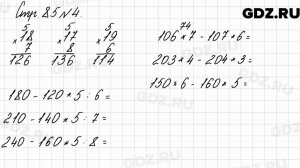 GDZ.RU
Стр. 85 №4.
5 5 5
×18 ×17 ×19
7 8 6
126 136 114
180 - 120 * 5 : 6 =
210 - 140 * 5 : 7 =
240 - 160 * 5 : 8 =
74
106 * 7 - 107 * 6 =
203 * 4 - 204 * 3 =
150 * 6 - 160 * 5 =
GDZ.RU